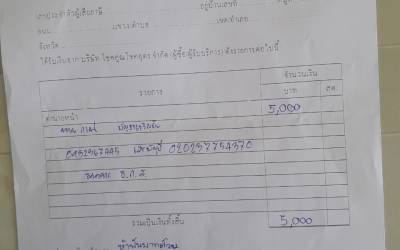 เลขประจำตัวผู้เสียภาษี อยู่บ้านเลขที่
ถนน แขวง/ตำบล เขต/อำเภอ
จังหวัด
ได้รับเงินจาก บริษัท โชคคูณโชคถูกร จำกัด (ผู้ซื้อ/ผู้รับบริการ) ดังรายการต่อไปนี้
รายการ จำนวนเงิน
บาท สต.
ค่านายหน้า 5,000
0952567445 เลขบัญชี 020257754370
ธนาคาร ธ.ก.ส
รวมเป็นเงินทั้งสิ้น 5,000
ห้าพันบาทถ้วน